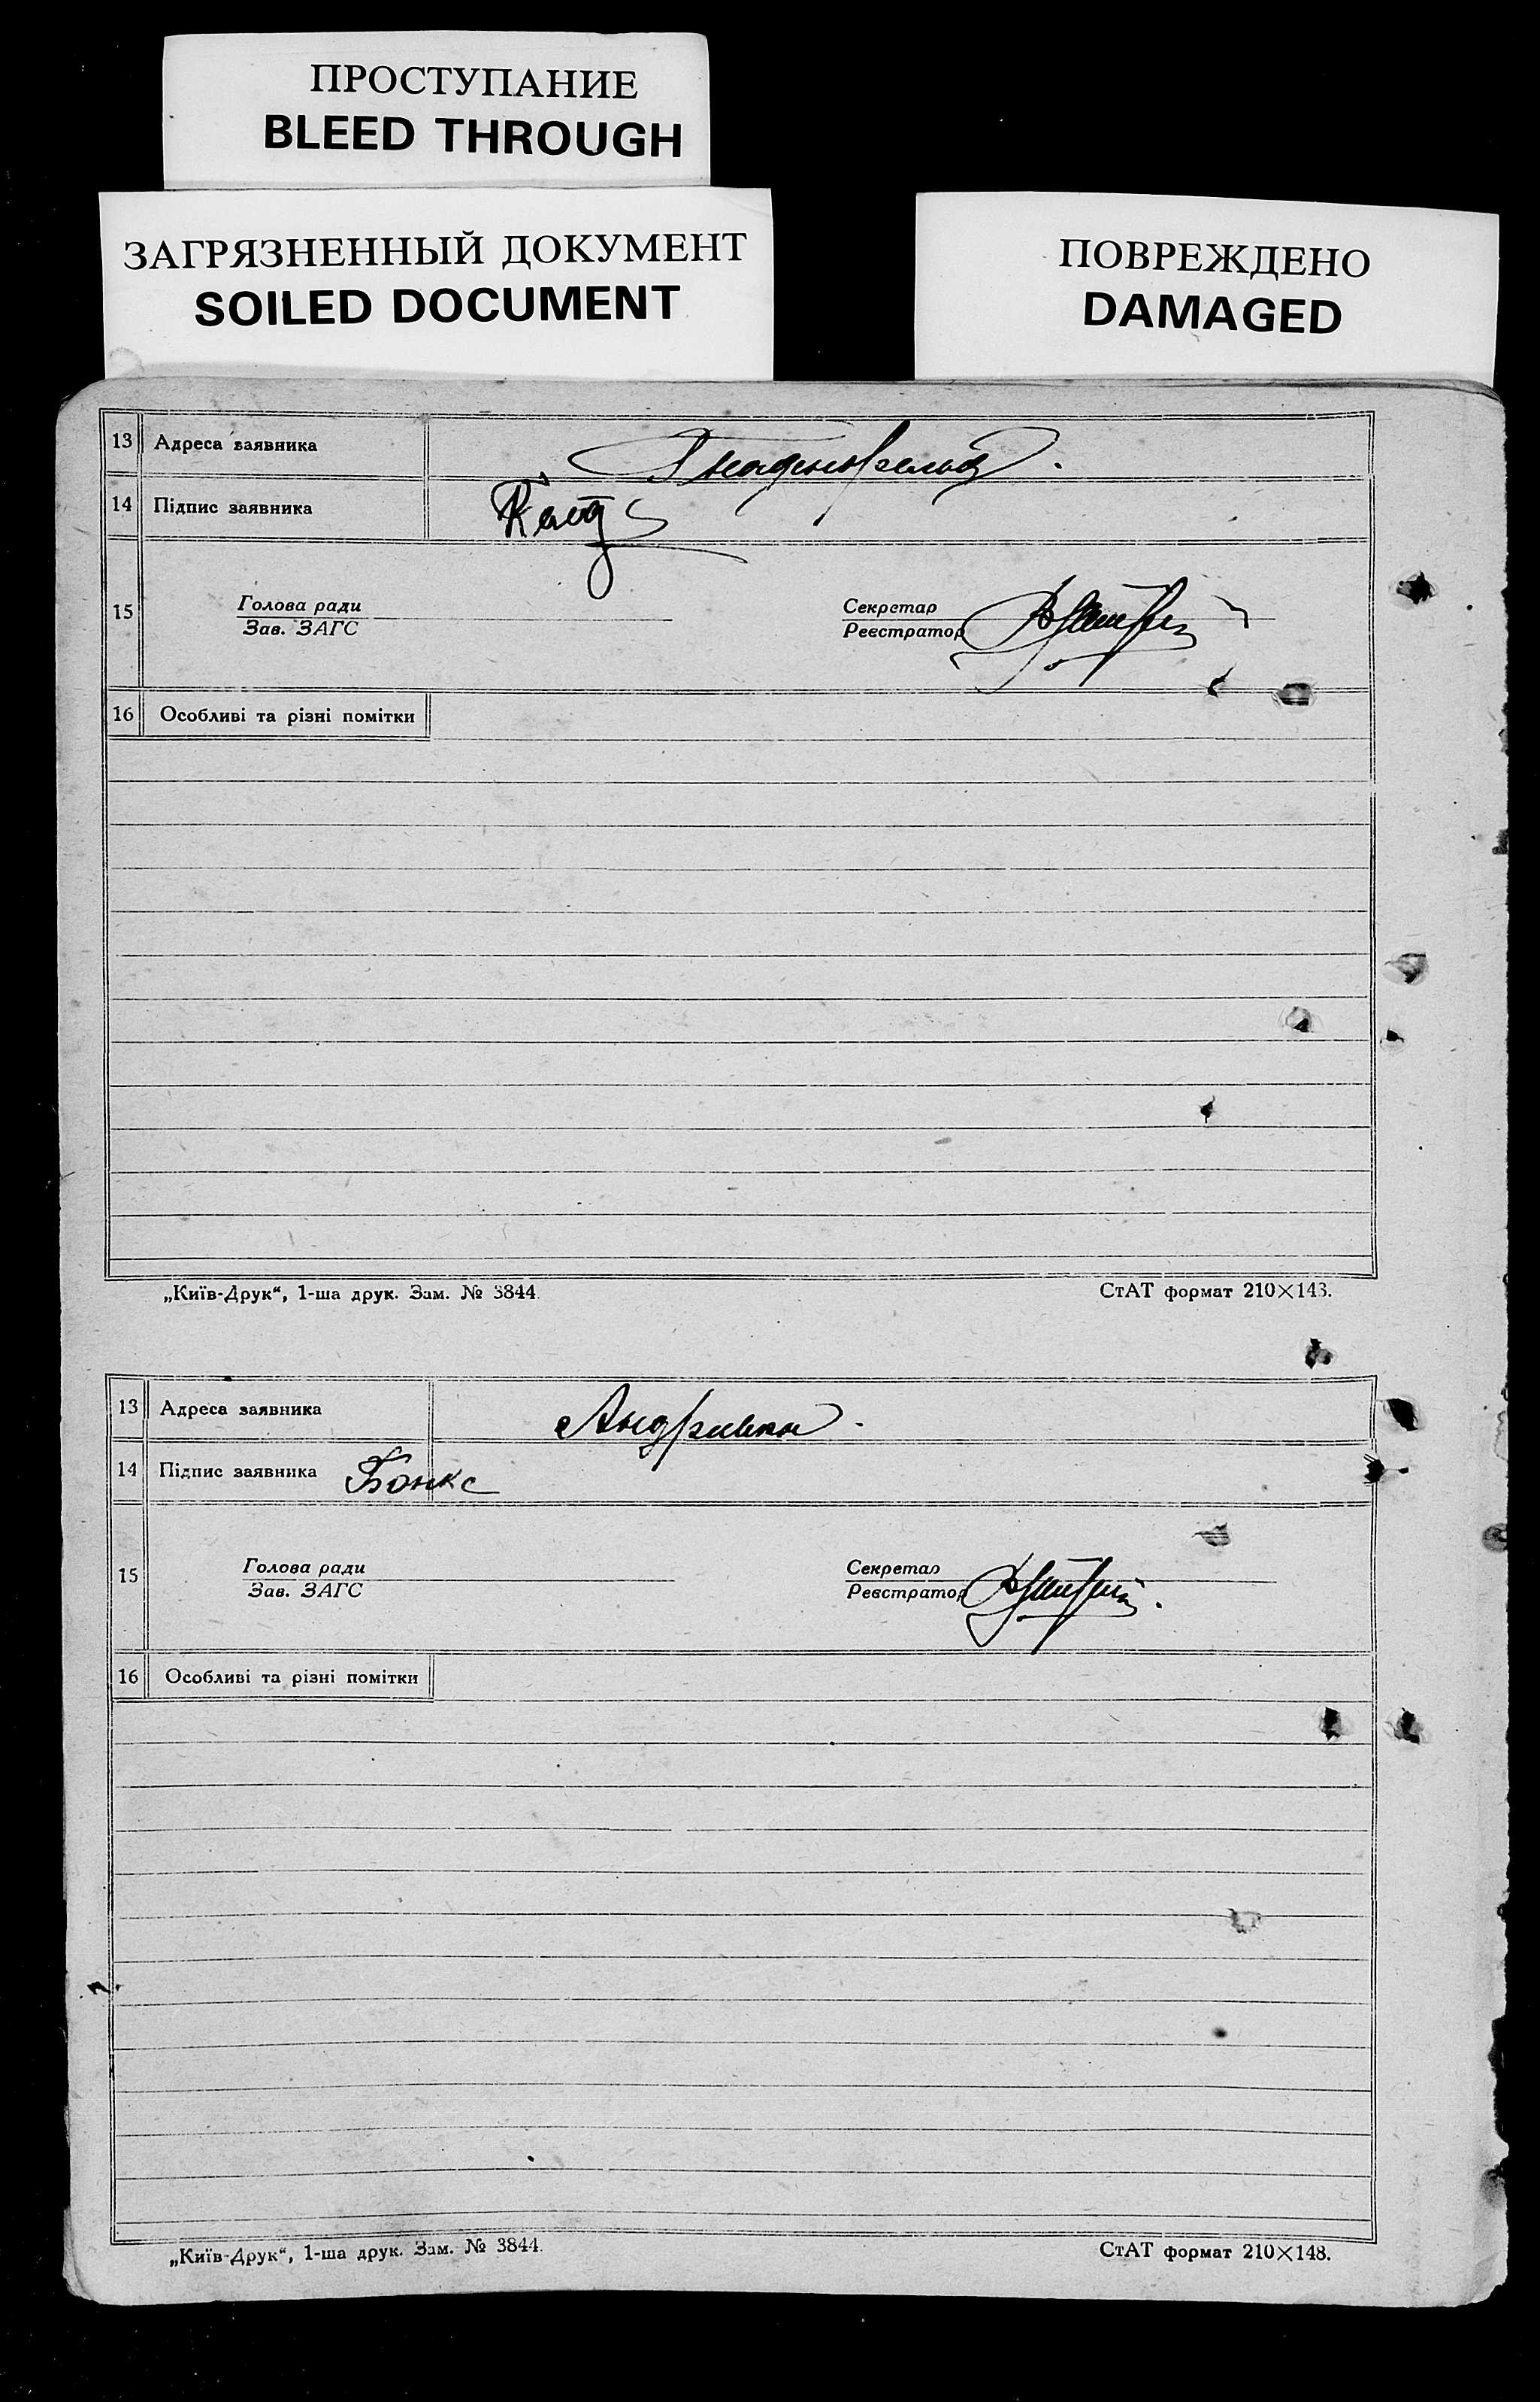 ПРОСТУПАНИЕ
BLEED THROUGH
ЗАГРЯЗНЕННЫЙ ДОКУМЕНТ
SOILED DOCUMENT
ПОВРЕЖДЕНО
DAMAGED
13 Адреса заявника Гнаденфельд.
14 Підпис заявника
15 Голова ради Секретар
Зав. ЗАГС Реєстратор
16 Особливі та різні помітки
„Київ-Друк“, 1-ша друк. Зам. № 3844. СтАТ формат 210×143.
13 Адреса заявника
14 Підпис заявника Бонкс
15 Голова ради Секретар
Зав. ЗАГС Реєстратор
16 Особливі та різні помітки
„Київ-Друк“, 1-ша друк. Зам. № 3844. СтАТ формат 210×148.